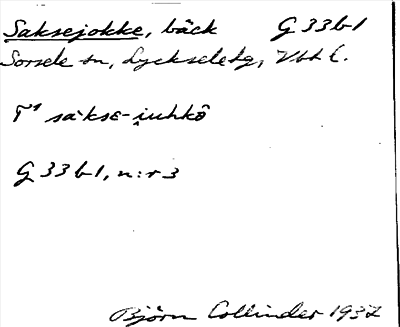 Saksejokke, bäck G 33b1
Sorsele sn, Lyckselehg, Vbt l.
T¹ sakse-i̯uhkō
G 33 b 1, n:r 3
Björn Collinder 1937